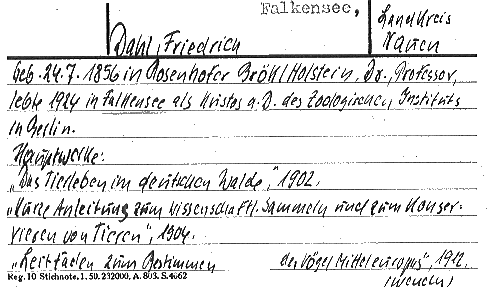 Falkensee,
Landkreis
Nauen
Dahl, Friedrich
geb. 24.7.1856 in Rosenhofer Brökl Holstein, Dr., Professor,
lebte 1924 in Falkensee als Kustos a.D. des Zoologischen Instituts
in Berlin.
Hauptwerke:
„Das Tierleben im deutschen Walde", 1902.
„Kurze Anleitung zum wissenschaftl. Sammeln und zum Konser-
vieren von Tieren", 1904.
„Leitfaden zum Bestimmen der Vögel Mitteleuropas", 1912.
(wenden)
Reg. 10 Stichnote. 1. 50. 232000. A. 803. S. 4662